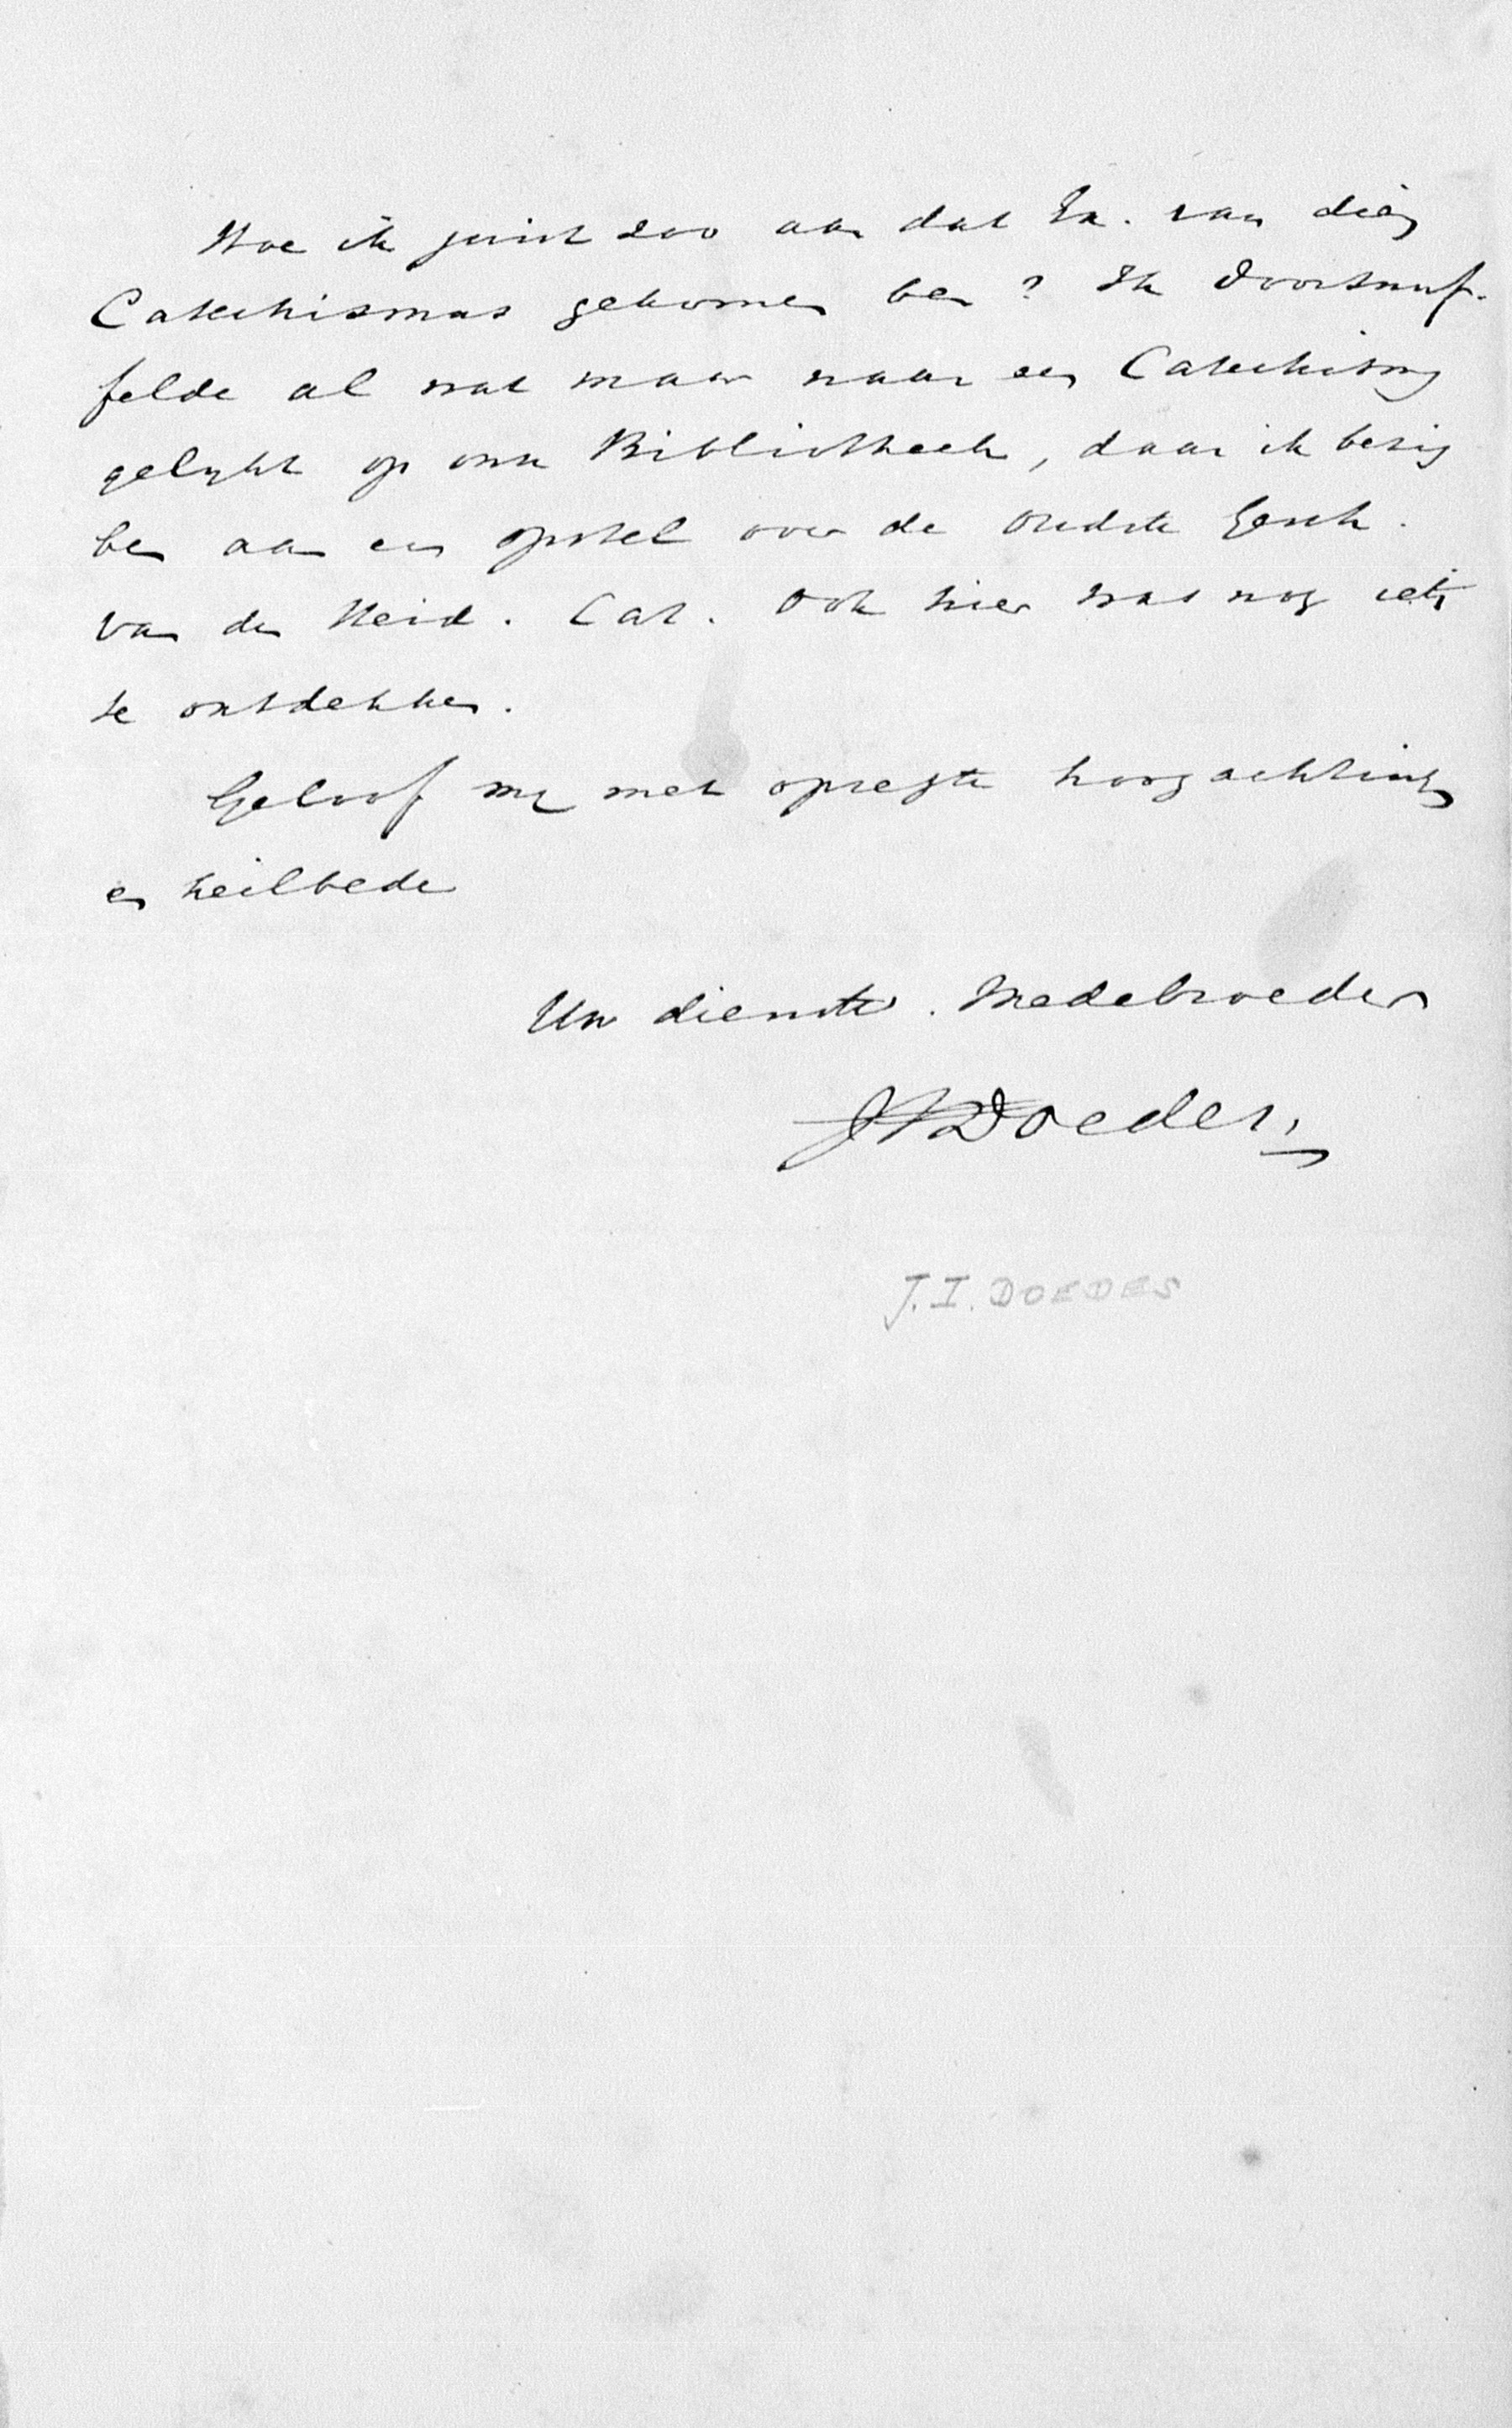 Hoe ik juist zoo aan dat Ex. van dien
Catechismus gekomen ben? Ik doorsnuf-
felde al wat maar naar een Catechismus
gelykt op onze Bibliotheek, daar ik bezig
ben aan een opstel over de oudste Gesch.
van den Heid. Cat. Ook hier was nog iets
te ontdekken.
Geloof my met opregte hoogachting
en heilbede
Uw dienstv. Medebroeder
JIDoedes,
J.I. DOEDES